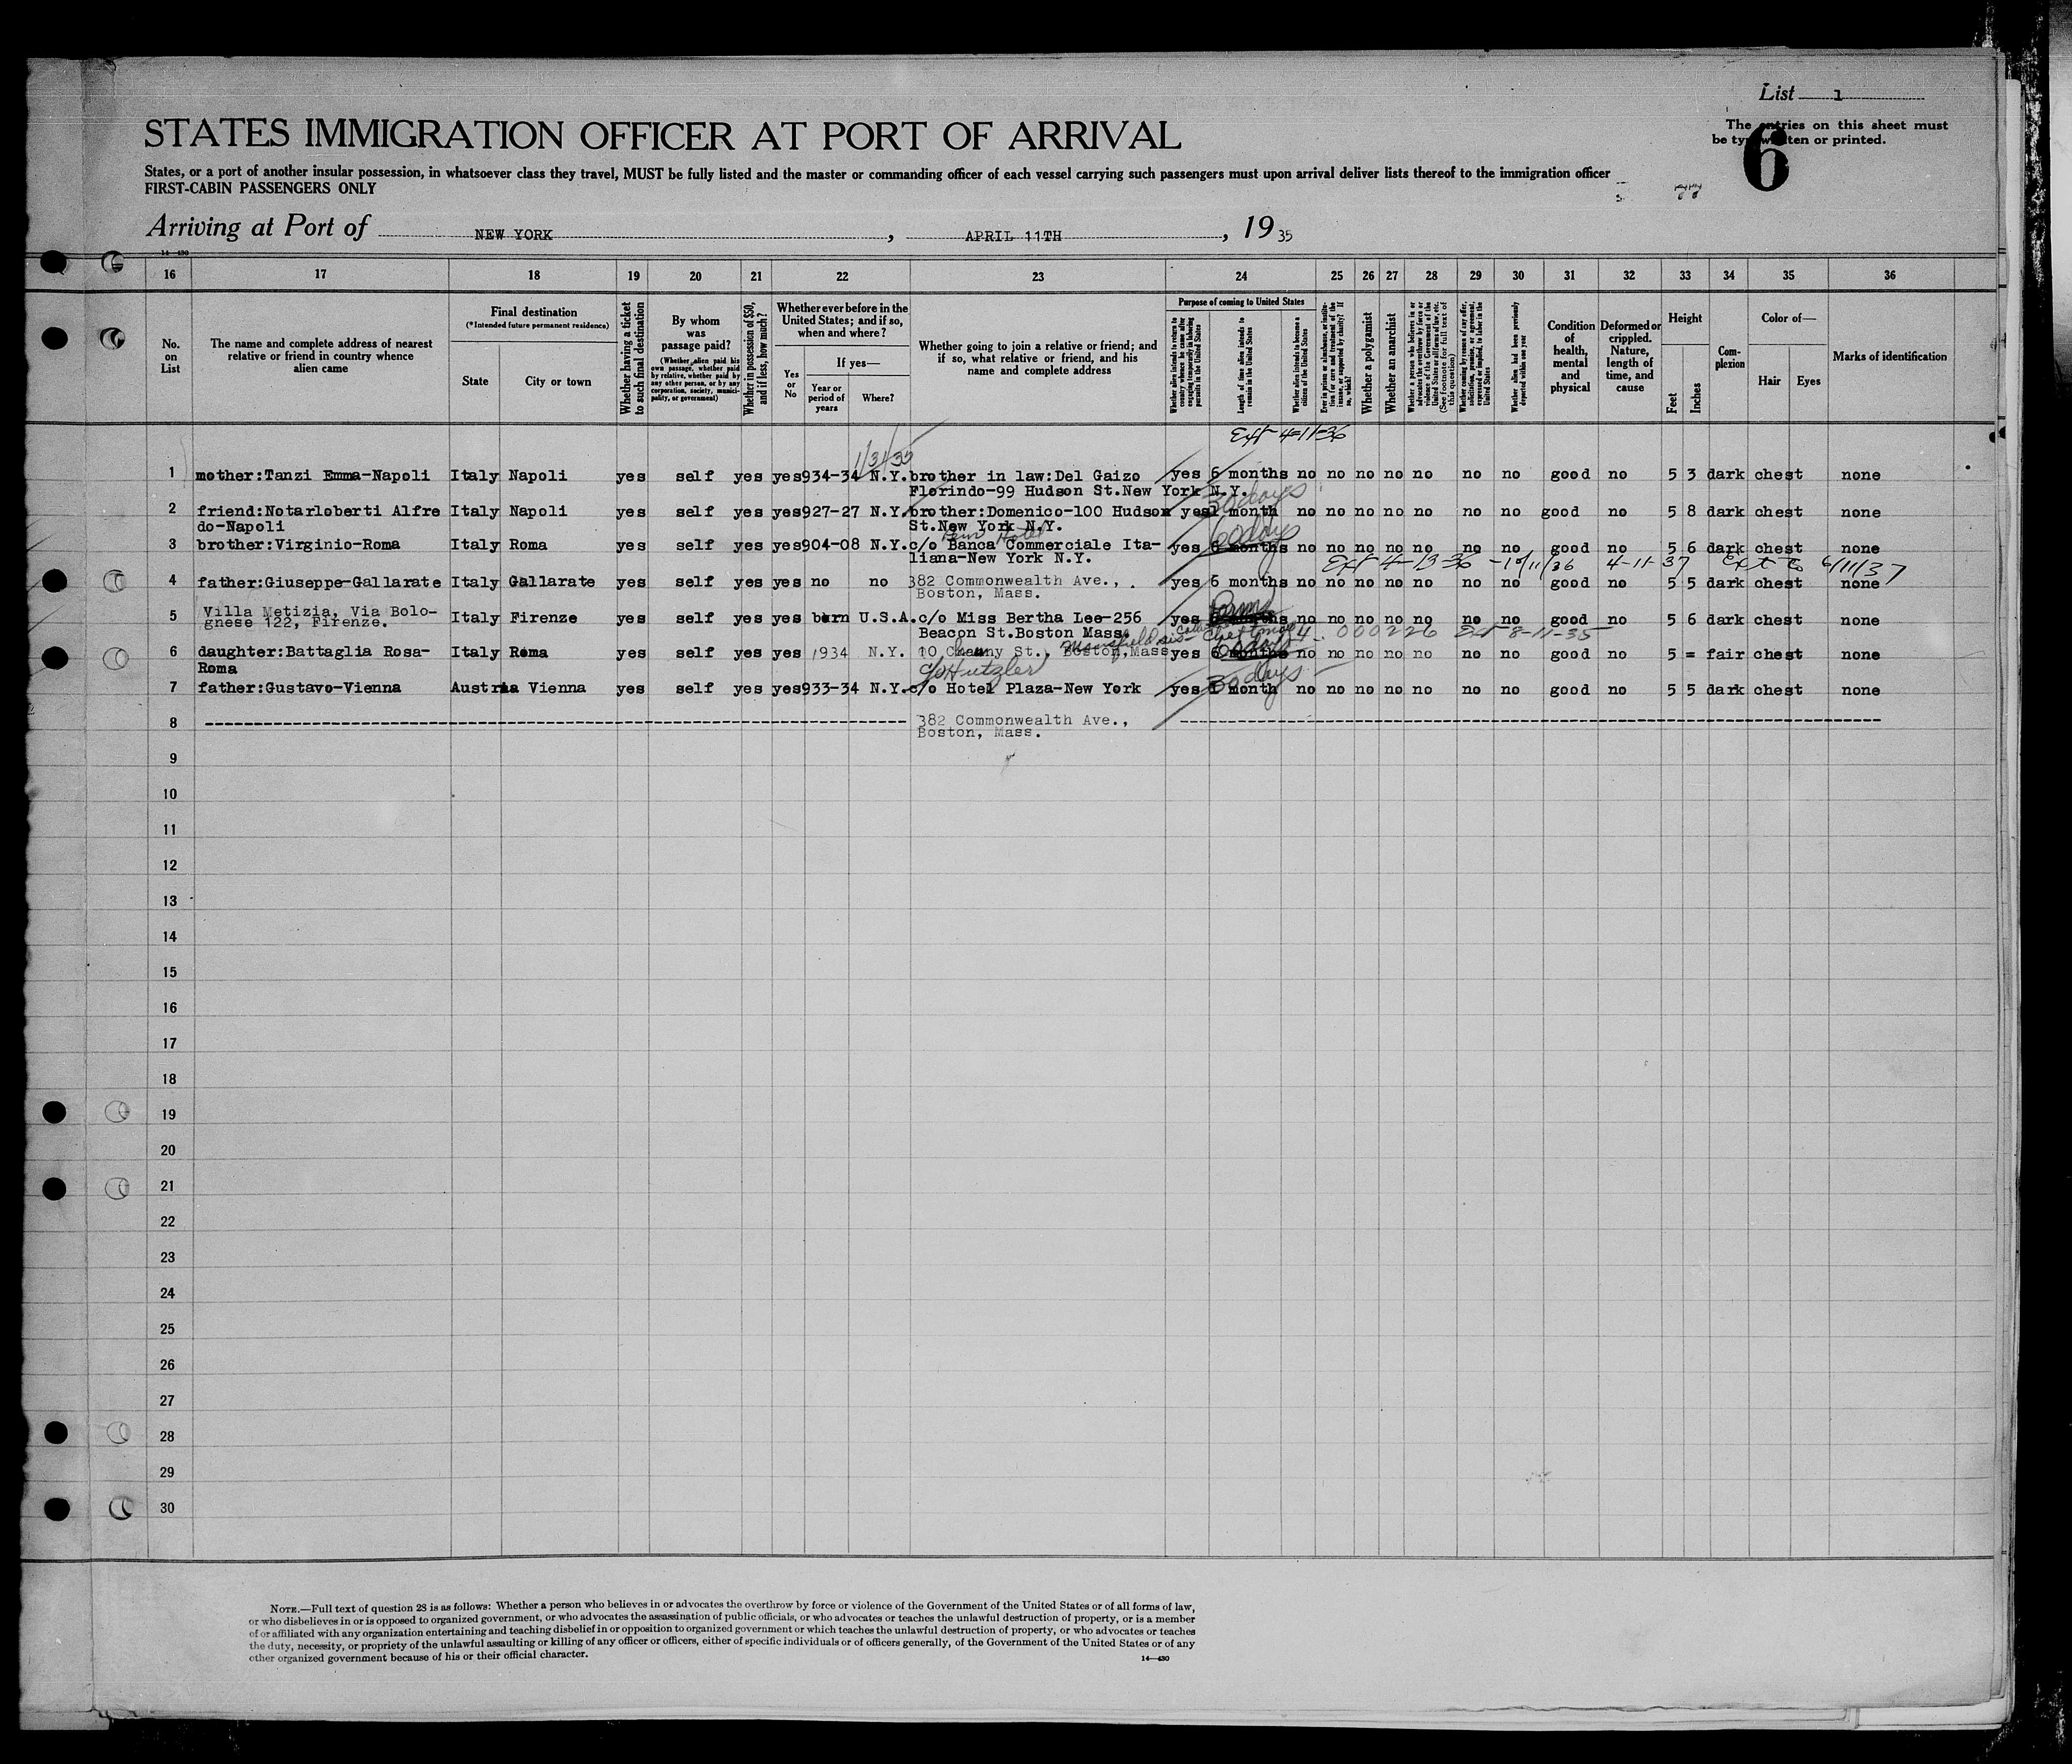 List 1
The entries on this sheet must
be typewritten or printed.
6
STATES IMMIGRATION OFFICER AT PORT OF ARRIVAL
States, or a port of another insular possession, in whatsoever class they travel, MUST be fully listed and the master or commanding officer of each vessel carrying such passengers must upon arrival deliver lists thereof to the immigration officer
FIRST-CABIN PASSENGERS ONLY
Arriving at Port of NEW YORK, APRIL 11TH, 1935
14—430
16 17 18 19 20 21 22 23 24 25 26 27 28 29 30 31 32 33 34 35 36
No. on List
The name and complete address of nearest relative or friend in country whence alien came
Final destination
(*Intended future permanent residence)
State
City or town
Whether having a ticket to such final destination
By whom was passage paid?
(Whether alien paid his own passage, whether paid by relative, whether paid by any other person, or by any corporation, society, municipality, or government)
Whether in possession of $50, and if less, how much?
Whether ever before in the United States; and if so, when and where?
Yes or No
If yes—
Year or period of years
Where?
Whether going to join a relative or friend; and if so, what relative or friend, and his name and complete address
Purpose of coming to United States
Whether alien intends to return to country whence he came after engaging temporarily in laboring pursuits in the United States
Length of time alien intends to remain in the United States
Whether alien intends to become a citizen of the United States
Ever in prison or almshouse, or institution for care and treatment of the insane, or supported by charity? If so, which?
Whether a polygamist
Whether an anarchist
Whether a person who believes in or advocates the overthrow by force or violence of the Government of the United States or all forms of law, etc. (See footnote for full text of this question)
Whether coming by reason of any offer, solicitation, promise, or agreement, expressed or implied, to labor in the United States
Whether alien had been previously deported within one year
Condition of health, mental and physical
Deformed or crippled. Nature, length of time, and cause
Height
Feet
Inches
Complexion
Color of—
Hair
Eyes
Marks of identification
Ext 4-11-36
1/31/35
1 mother:Tanzi Emma-Napoli Italy Napoli yes self yes yes 934-34 N.Y. brother in law:Del Gaizo yes 6 months no no no no no no no good no 5 3 dark chest none
Florindo-99 Hudson St.New York N.Y.
30 days
2 friend:Notarloberti Alfre Italy Napoli yes self yes yes 927-27 N.Y. brother:Domenico-100 Hudson yes 1 month no no no no no no no good no 5 8 dark chest none
do-Napoli St.New York N.Y.
Penn Hotel 60 days
3 brother:Virginio-Roma Italy Roma yes self yes yes 904-08 N.Y. c/o Banca Commerciale Ita- yes 6 months no no no no no no no good no 5 6 dark chest none
liana-New York N.Y.
Ext 4-13-36 -10/11/36 4-11-37 Ext to 6/11/37
4 father:Giuseppe-Gallarate Italy Gallarate yes self yes yes no no 382 Commonwealth Ave., yes 6 months no no no no no no no good no 5 5 dark chest none
Boston, Mass.
5 Villa Metizia, Via Bolo- Italy Firenze yes self yes yes born U.S.A. c/o Miss Bertha Lee-256 yes no no no no no no no good no 5 6 dark chest none
gnese 122, Firenze. Beacon St.Boston Mass.
000226 Ext 8-11-35
6 daughter:Battaglia Rosa- Italy Roma yes self yes yes 1934 N.Y. 10 St., Boston,Mass yes 6 months no no no no no no no good no 5 = fair chest none
Roma 60 days
c/o Hutzler 30 days
7 father:Gustavo-Vienna Austria Vienna yes self yes yes 933-34 N.Y. c/o Hotel Plaza-New York yes 1 month no no no no no no no good no 5 5 dark chest none
8 382 Commonwealth Ave.,
Boston, Mass.
9
10
11
12
13
14
15
16
17
18
19
20
21
22
23
24
25
26
27
28
29
30
NOTE.—Full text of question 28 is as follows: Whether a person who believes in or advocates the overthrow by force or violence of the Government of the United States or of all forms of law,
or who disbelieves in or is opposed to organized government, or who advocates the assassination of public officials, or who advocates or teaches the unlawful destruction of property, or is a member
of or affiliated with any organization entertaining and teaching disbelief in or opposition to organized government or which teaches the unlawful destruction of property, or who advocates or teaches
the duty, necessity, or propriety of the unlawful assaulting or killing of any officer or officers, either of specific individuals or of officers generally, of the Government of the United States or of any
other organized government because of his or their official character.
14—430